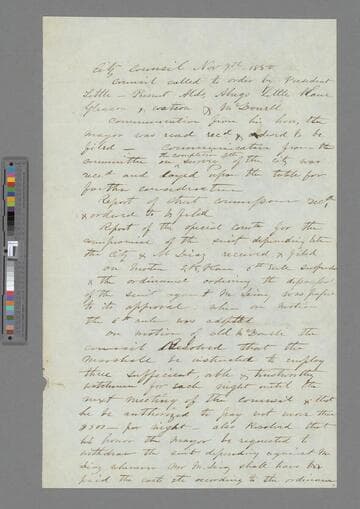 City Council Nov 7th 1850
Council called to order by President
Little – Present Alds,
Gleason & Watson & McDonell
Communication from his hon, the
mayor was read recd & ordered to be
filed – Communication from the
committee on the completion of the survey of the City was
recd and layed upon the table for
further consideration
Report of street commissioner recd
& ordered to be filed
Report of the special comte for the
compromise of the suit depending btw
the City & received & filed
on motion 6th rule suspended
& the ordinance ordering the
of the suit against Mr
to its approval when on motion
the 6th rule was adopted
on motion of ald McDonell the
council Resolved that the
Marshall be instructed to employ
three sufficient, able & trustworthy
watchmen for each night until the
next meeting of the council & that
he be authorized to pay not more than
per night – also Resolved that
his honor the mayor be requested to
withdraw the suit depending against Mr
whenever Mr shall have
paid the costs etc according to the ordinance